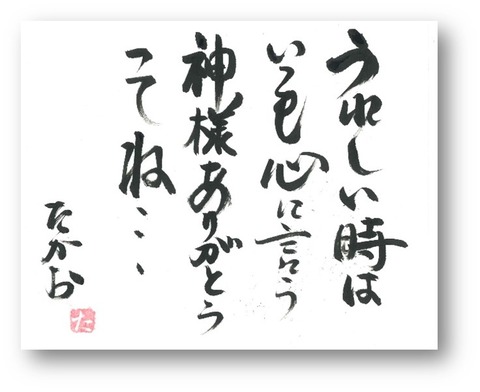 うれしい時は
いつも心に言う
神様ありがとう
こてね…
たかお
た